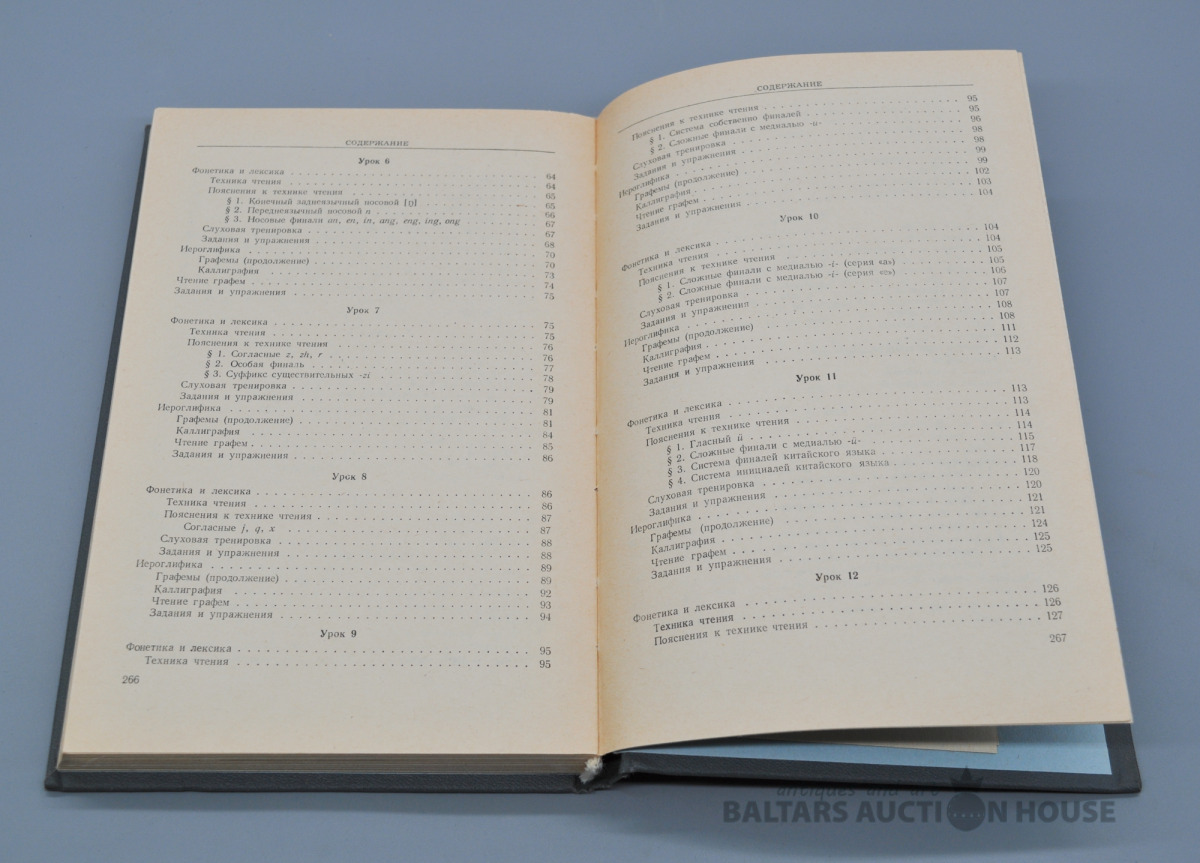 СОДЕРЖАНИЕ
Урок 6
Фонетика и лексика . . . 64
Техника чтения . . . 64
Пояснения к технике чтения . . . 65
§ 1. Конечный заднеязычный носовой [ŋ] . . . 65
§ 2. Переднеязычный носовой n . . . 66
§ 3. Носовые финали an, en, in, ang, eng, ing, ong . . . 67
Слуховая тренировка . . . 67
Задания и упражнения . . . 68
Иероглифика . . . 70
Графемы (продолжение) . . . 70
Каллиграфия . . . 73
Чтение графем . . . 74
Задания и упражнения . . . 75
Урок 7
Фонетика и лексика . . . 75
Техника чтения . . . 75
Пояснения к технике чтения . . . 76
§ 1. Согласные z, zh, r . . . 76
§ 2. Особая финаль . . . 77
§ 3. Суффикс существительных -zi . . . 78
Слуховая тренировка . . . 79
Задания и упражнения . . . 79
Иероглифика . . . 81
Графемы (продолжение) . . . 81
Каллиграфия . . . 84
Чтение графем . . . 85
Задания и упражнения . . . 86
Урок 8
Фонетика и лексика . . . 86
Техника чтения . . . 86
Пояснения к технике чтения . . . 87
Согласные j, q, x . . . 87
Слуховая тренировка . . . 88
Задания и упражнения . . . 88
Иероглифика . . . 89
Графемы (продолжение) . . . 89
Каллиграфия . . . 92
Чтение графем . . . 93
Задания и упражнения . . . 94
Урок 9
Фонетика и лексика . . . 95
Техника чтения . . . 95
266
СОДЕРЖАНИЕ
Пояснения к технике чтения . . . 95
§ 1. Система собственно финалей . . . 95
§ 2. Сложные финали с медиалью -u- . . . 96
Слуховая тренировка . . . 98
Задания и упражнения . . . 98
Иероглифика . . . 99
Графемы (продолжение) . . . 99
Каллиграфия . . . 102
Чтение графем . . . 103
Задания и упражнения . . . 104
Урок 10
Фонетика и лексика . . . 104
Техника чтения . . . 104
Пояснения к технике чтения . . . 105
§ 1. Сложные финали с медиалью -i- (серия «a») . . . 105
§ 2. Сложные финали с медиалью -i- (серия «e») . . . 106
Слуховая тренировка . . . 107
Задания и упражнения . . . 107
Иероглифика . . . 108
Графемы (продолжение) . . . 108
Каллиграфия . . . 111
Чтение графем . . . 112
Задания и упражнения . . . 113
Урок 11
Фонетика и лексика . . . 113
Техника чтения . . . 113
Пояснения к технике чтения . . . 114
§ 1. Гласный ü . . . 114
§ 2. Сложные финали с медиалью -ü- . . . 115
§ 3. Система финалей китайского языка . . . 117
§ 4. Система инициалей китайского языка . . . 118
Слуховая тренировка . . . 120
Задания и упражнения . . . 120
Иероглифика . . . 121
Графемы (продолжение) . . . 121
Каллиграфия . . . 124
Чтение графем . . . 125
Задания и упражнения . . . 125
Урок 12
Фонетика и лексика . . . 126
Техника чтения . . . 126
Пояснения к технике чтения . . . 127
267
antiques and art
BALTARS AUCTION HOUSE